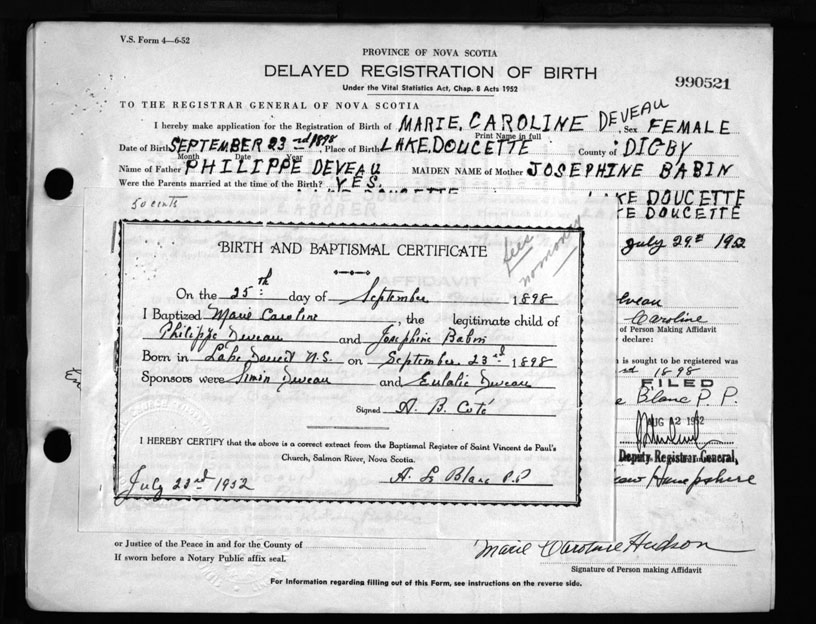 V.S. Form 4—6-52
PROVINCE OF NOVA SCOTIA
DELAYED REGISTRATION OF BIRTH
990521
Under the Vital Statistics Act, Chap. 8 Acts 1952
TO THE REGISTRAR GENERAL OF NOVA SCOTIA
I hereby make application for the Registration of Birth of MARIE, CAROLINE DEVEAU, Sex FEMALE
Print Name in full
Date of Birth SEPTEMBER 23rd 1898, Place of Birth LAKE, DOUCETTE County of DIGBY
Month Date Year
Name of Father PHILIPPE DEVEAU MAIDEN NAME of Mother JOSEPHINE BABIN
Were the Parents married at the time of the Birth? YES.
50 cents
KE DOUCETTE
KE DOUCETTE
July 29th 1952
BIRTH AND BAPTISMAL CERTIFICATE
On the 25th day of September 1898
I Baptized Marie Caroline, the legitimate child of
Philippe Deveau and Josephine Babin
Born in Lake Doucet N.S. on September 23rd 1898
Sponsors were Simon Deveau and Eulalie Deveau
Signed A. B. Coté
I HEREBY CERTIFY that the above is a correct extract from the Baptismal Register of Saint Vincent de Paul's
Church, Salmon River, Nova Scotia.
July 22nd 1952 A. Le Blanc P.P
eveau
Caroline
of Person Making Affidavit
declare:
is sought to be registered was
rd 1898
FILED
Blanc P. P.
AUG 12 1952
Deputy Registrar General,
New Hampshire
or Justice of the Peace in and for the County of
If sworn before a Notary Public affix seal.
Marie Caroline Hudson
Signature of Person making Affidavit
For Information regarding filling out of this Form, see instructions on the reverse side.